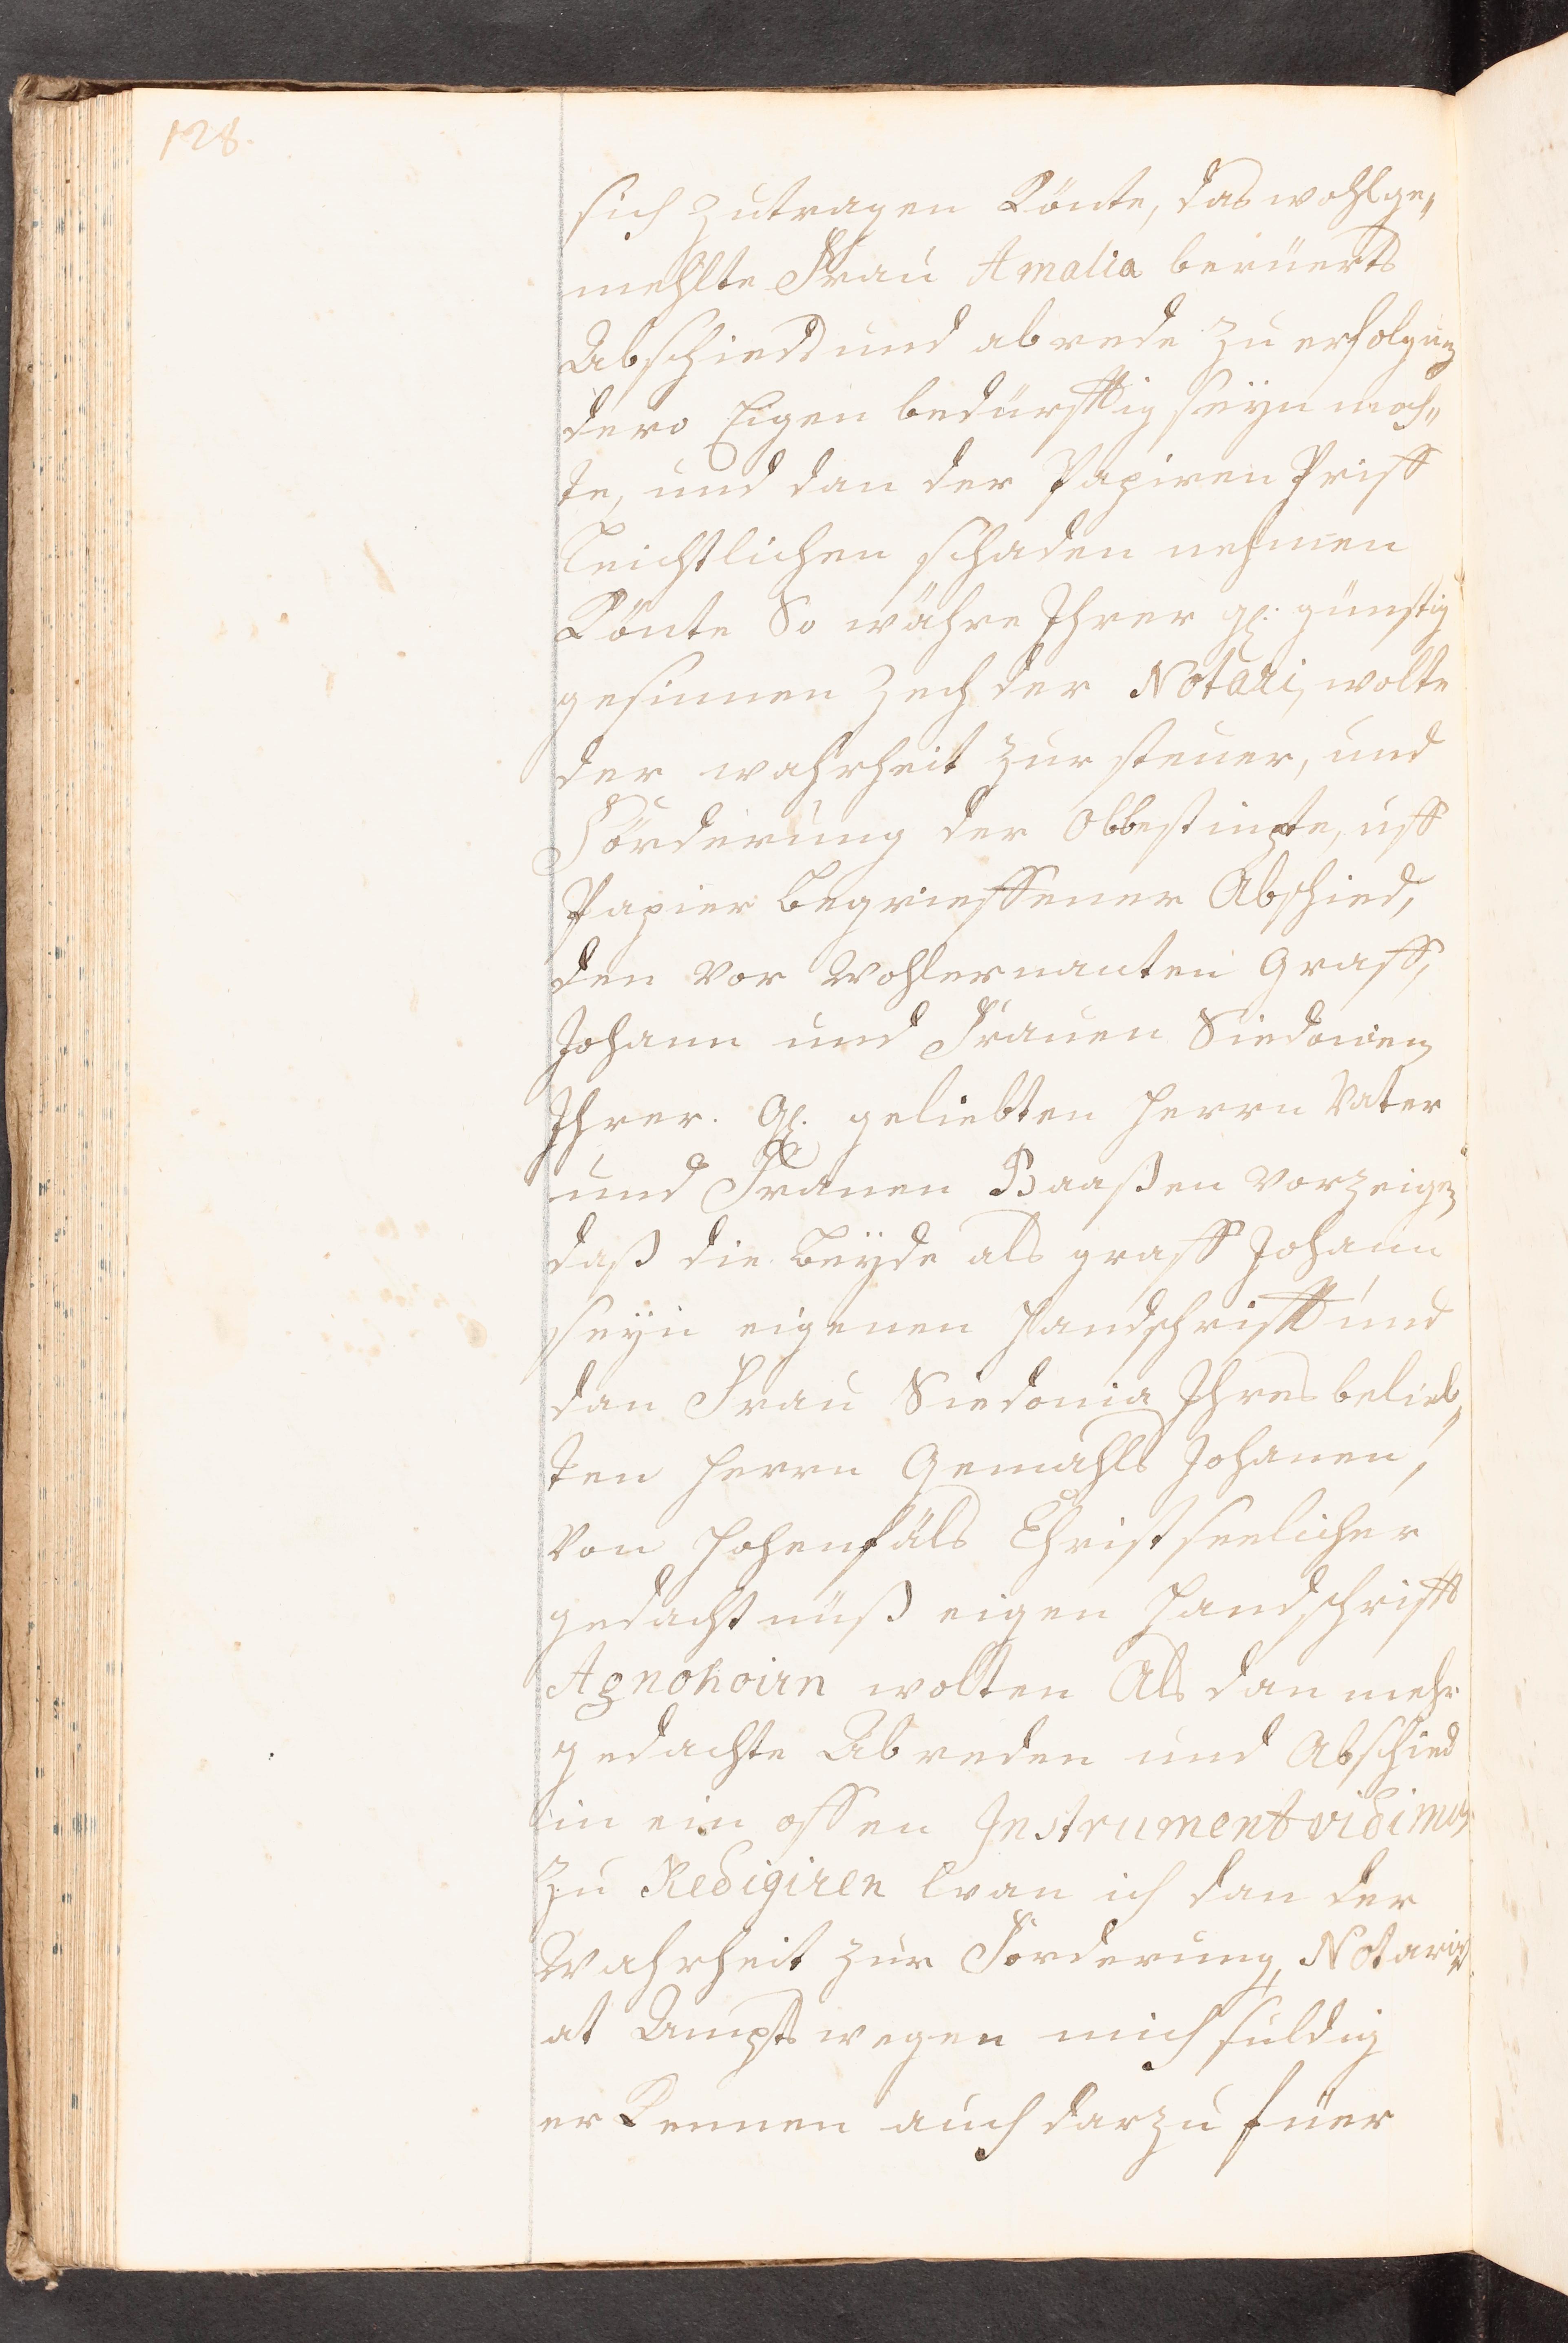 128.
sich zutragen Könte, das wohlge„
mehlte Frau Amalia berüerts
Abschiedt und abrede zu erfolgung
dero Eigen bedürfftig seyn moch„
te, und dan der Papiren Priff
leichtlichen schaden nehmen
Könte So währe Ihrer gl: günstig
gesinnen Ich der Notari, wolte
der wahrheit zur steuer, und
Förderung der Obbestimpte, uff
Papier begrieffener Abschied,
den vor Wohlernanten Graff,
Johann und Frauen Siedonien
Ihrer. Gl. geliebten Herrn Vater
und Frauen Baaßen vorzeigen
daß die beyde als graff Johann
seyn eigenen Handschrifft und
dan Frau Siedonia Ihres belieb„
ten Herrn Gemahls Johanen,
von Hohenfäls Christseelicher
gedachtnüß eigen Handschrifft
Agnohoirn wolten Als dan mehr
gedachte Abreden und Abschied
in ein offen Instrument vidimus
zu Redigiren wan ich dan der
Wahrheit zur Forderung, Notari„
at Ampts wegen mich suldig
erKennen auch darzu füer